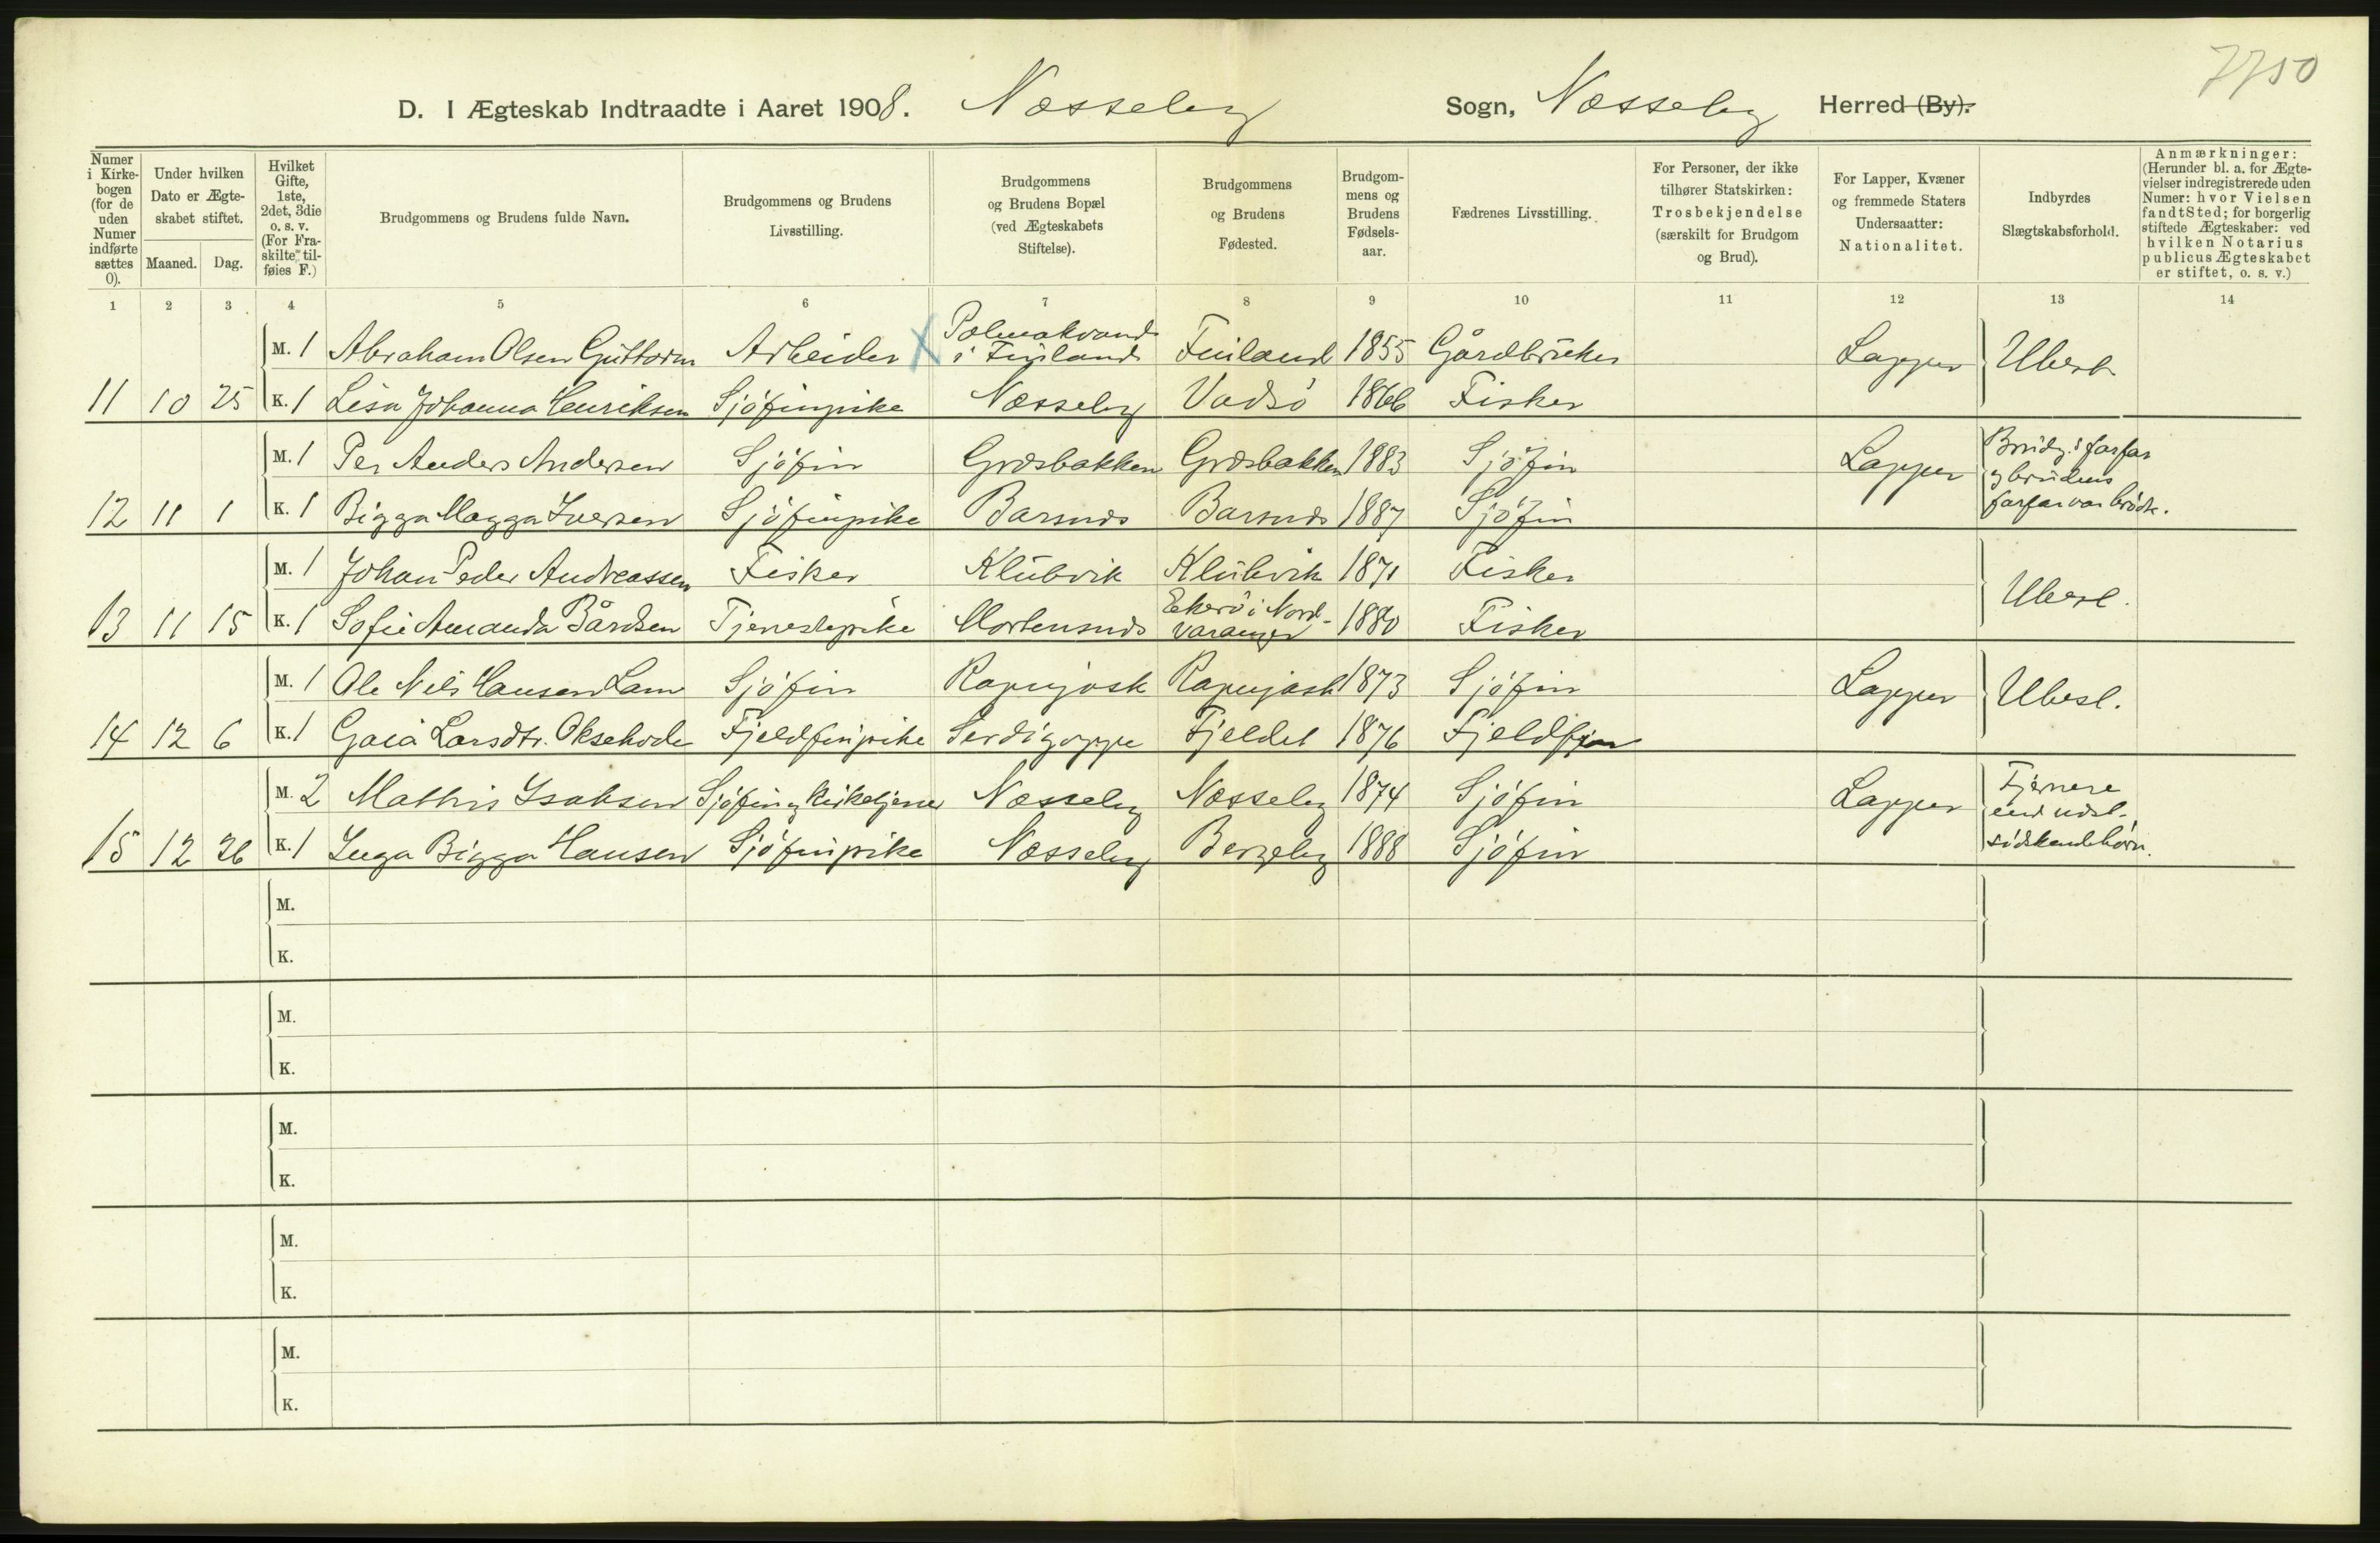 7750
D. I Ægteskab Indtraadte i Aaret 1908. Næsseby Sogn, Næsseby Herred (By).
Numer i Kirkebogen (for de uden Numer indførte sættes 0).
Under hvilken Dato er Ægteskabet stiftet.
Maaned. Dag.
Hvilket Gifte, 1ste, 2det, 3die o. s. v. (For Fraskilte tilføies F.)
Brudgommens og Brudens fulde Navn.
Brudgommens og Brudens Livsstilling.
Brudgommens og Brudens Bopæl (ved Ægteskabets Stiftelse).
Brudgommens og Brudens Fødested.
Brudgommens og Brudens Fødselsaar.
Fædrenes Livsstilling.
For Personer, der ikke tilhører Statskirken: Trosbekjendelse (særskilt for Brudgom og Brud).
For Lapper, Kvæner og fremmede Staters Undersaatter: Nationalitet.
Indbyrdes Slægtskabsforhold.
Anmærkninger: (Herunder bl. a. for Ægtevielser indregistrerede uden Numer: hvor Vielsen fandt Sted; for borgerlig stiftede Ægteskaber: ved hvilken Notarius publicus Ægteskabet er stiftet, o. s. v.)
1 2 3 4 5 6 7 8 9 10 11 12 13 14
M. 1 Abraham Olsen Guttorm Arbeider X Polmakvand i Finland Finland 1855 Gårdbruker Lapper Ubesl.
11 10 25 K. 1 Lisa Johanna Henriksen Sjöfinpike Næsseby Vadsö 1866 Fisker
M. 1 Per Anders Andersen Sjöfin Græsbakken Græsbakken 1883 Sjöfin Lapper Brudg.s farfar og brudens farfar var brödre.
12 11 1 K. 1 Bigga Magga Iversen Sjöfinpike Barsnæs Barsnæs 1887 Sjöfin
M. 1 Johan Peder Andreassen Fisker Klubvik Klubvik 1871 Fisker Ubesl.
13 11 15 K. 1 Sofie Amanda Bårdsen Tjenestepike Mortensnæs Ekerö i Nord-varanger 1880 Fisker
M. 1 Ole Nils Hansen Lam Sjöfin Rapujosk Rapujosk 1873 Sjöfin Lapper Ubesl.
14 12 6 K. 1 Gaia Larsdtr. Oksehode Fjeldfinpike Serdigoppe Fjeldet 1876 Fjeldfin
M. 2 Mathis Isaksen Sjöfin og kirketjener Næsseby Næsseby 1874 Sjöfin Lapper Fjernere end næst-södskendebörn.
15 12 26 K. 1 Inga Bigga Hansen Sjöfinpike Næsseby Bergeby 1888 Sjöfin
M.
K.
M.
K.
M.
K.
M.
K.
M.
K.